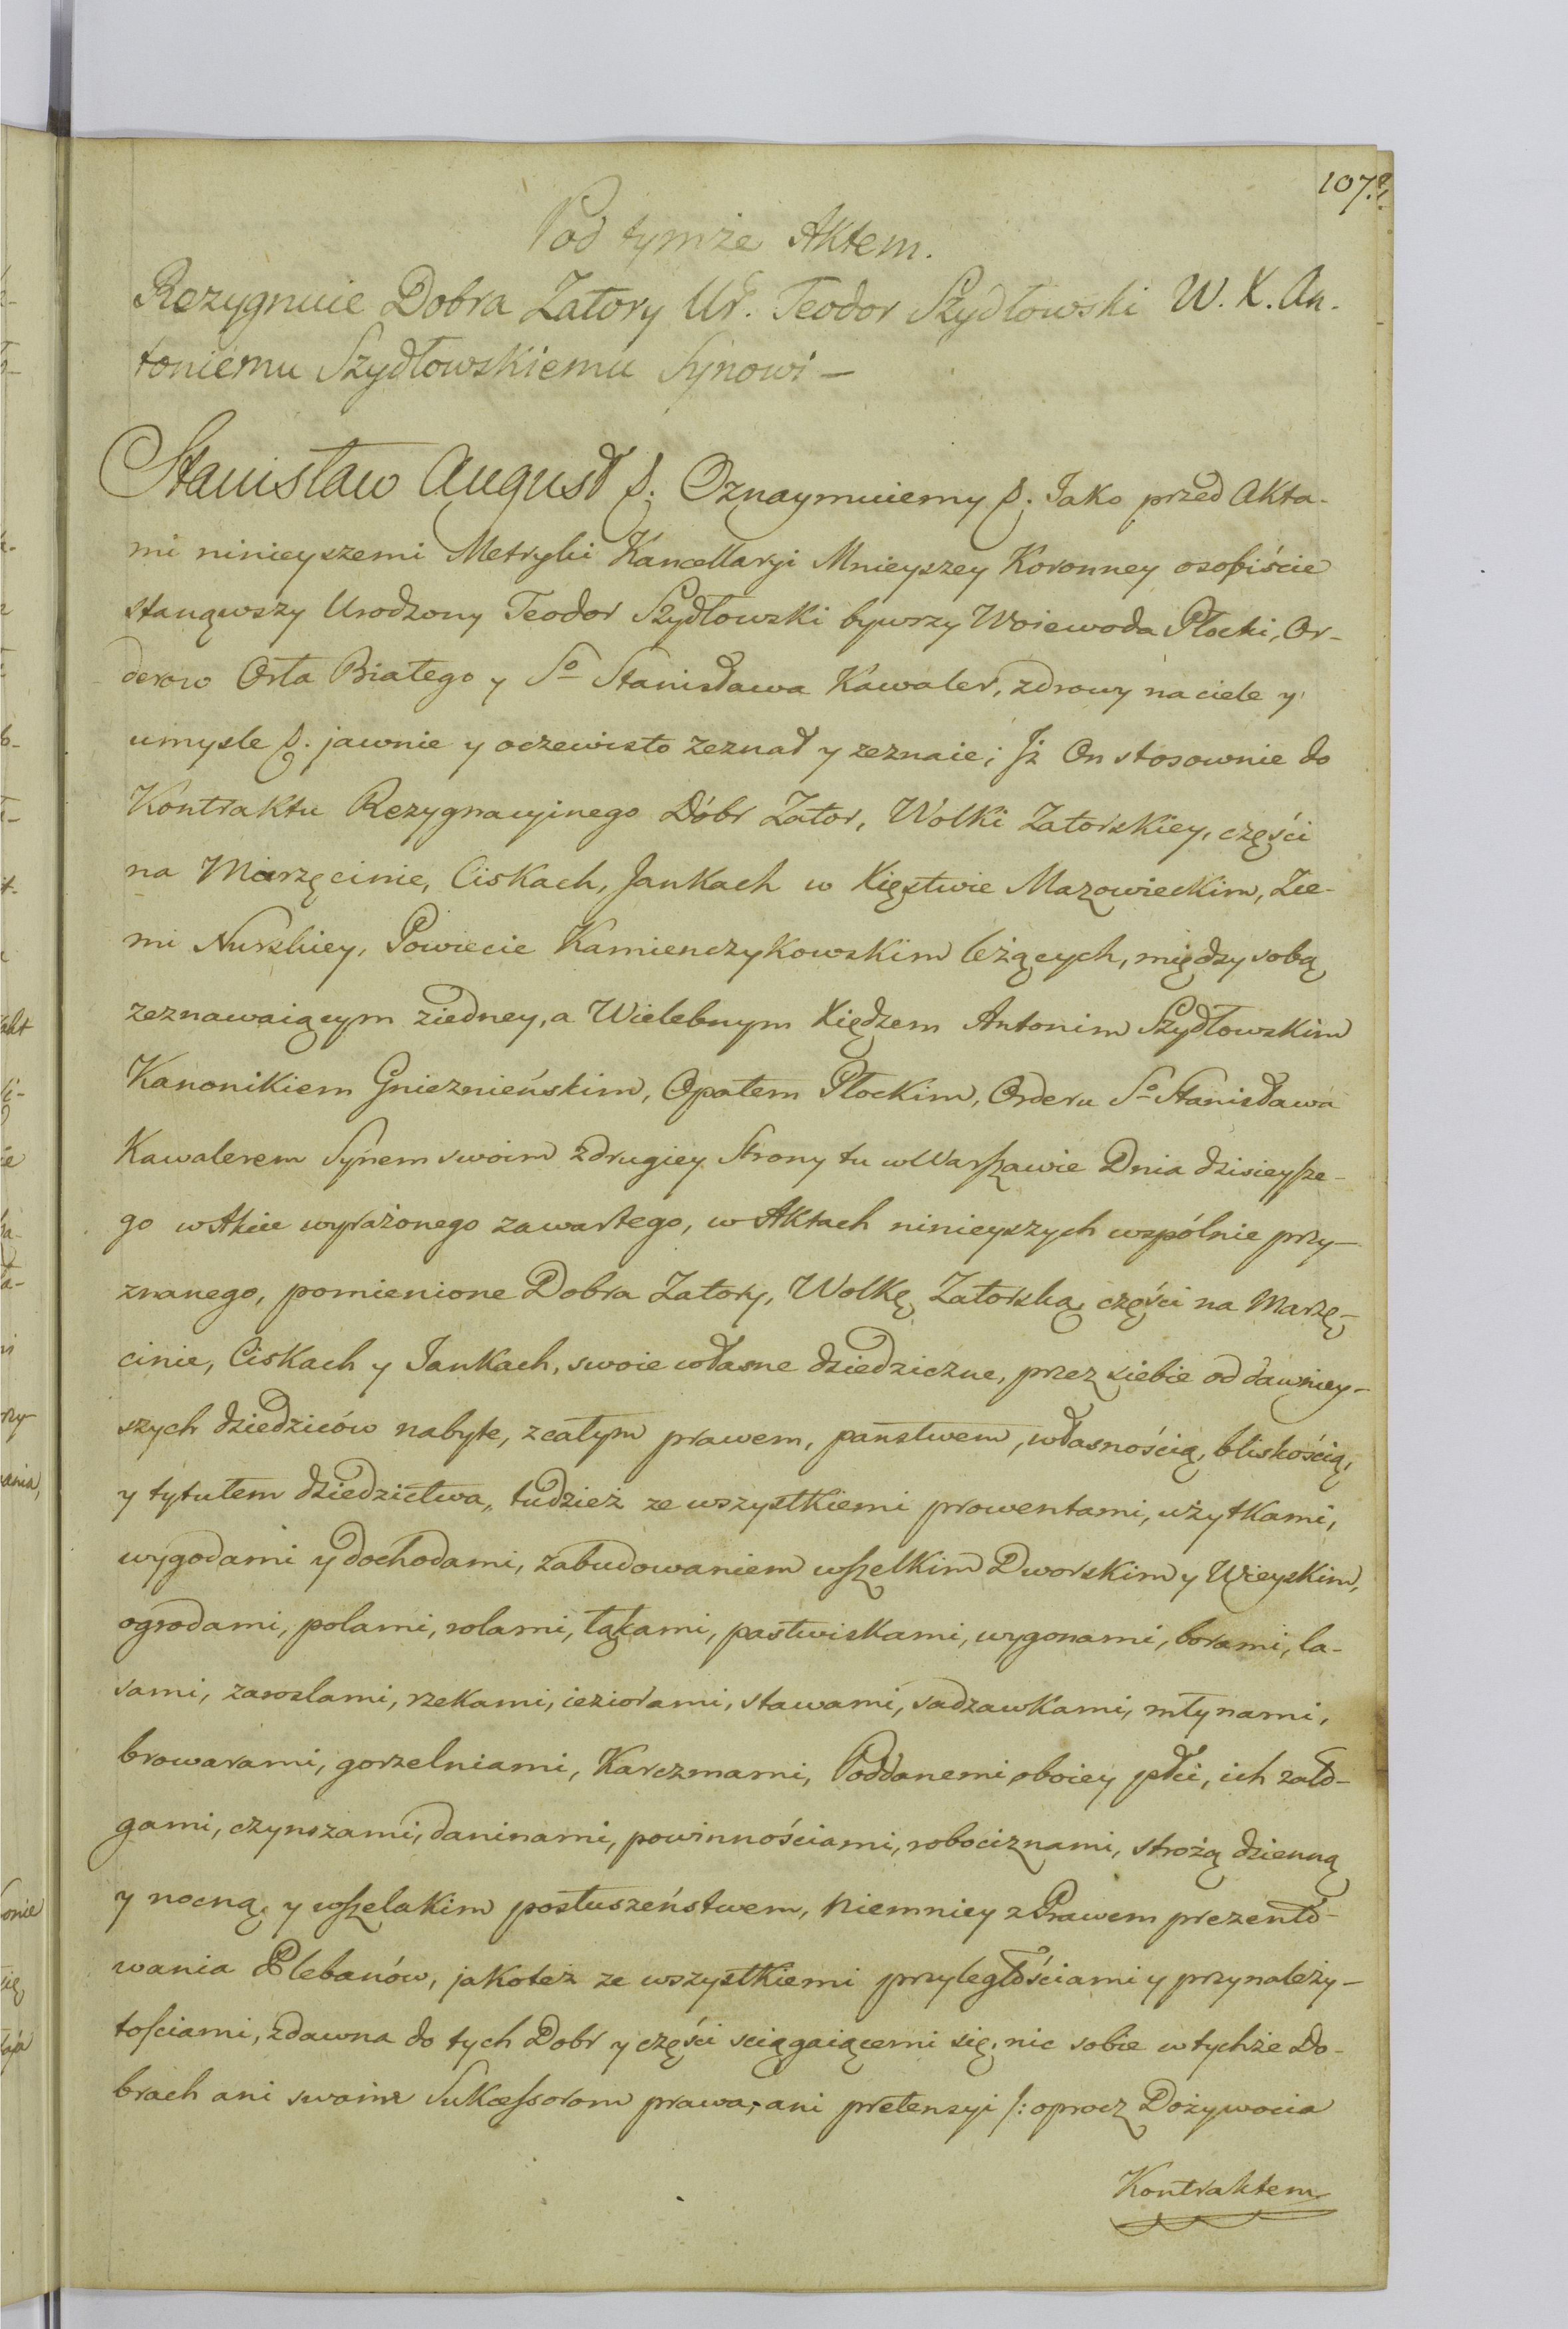 107.
Pod tymże Aktem.
Rezygnuie Dobra Zatory Ur. Teodor Szydłowski W. X. An-
toniemu Szydłowskiemu Synowi —
Stanisław August &. Oznaymuiemy &. Jako przed Akta-
mi ninieyszemi Metryki Kancellaryi Mnieyszey Koronney osobiście
stanąwszy Urodzony Teodor Szydłowski bywszy Woiewoda Płocki, Or-
derow Orła Białego y So Stanisława Kawaler, zdrowy na ciele y
umysle &. jawnie y oczewisto zeznał y zeznaie; Iż On stosownie do
Kontraktu Rezygnacyinego Dóbr Zator, Wolki Zatorskiey, części
na Marzęcinie, Ciskach, Jankach w Xięstwie Mazowieckim, Zie-
mi Nurskiey, Powiecie Kamienczykowskim leżących, między sobą
zeznawaiącym ziedney, a Wielebnym Xiędzem Antonim Szydłowskim
Kanonikiem Gnieznieńskim, Opatem Płockim, Orderu So Stanisława
Kawalerem Synem swoim zdrugiey Strony tu w Warszawie Dnia dzisieysze-
go w Akcie wyrażonego zawartego, w Aktach ninieyszych wspólnie przy-
znanego, pomienione Dobra Zatory, Wolkę Zatorską, części na Marzę-
cinie, Ciskach y Jankach, swoie własne dziedziczne, przez siebie od dawniey-
szych dziedziców nabyte, z całym prawem, panstwem, własnością, bliskością,
y tytułem dziedzictwa, tudzież ze wszystkiemi prowentami, użytkami,
wygodami y dochodami, zabudowaniem wszelkim Dworskim y Wieyskim,
ogrodami, polami, rolami, łąkami, pastwiskami, wygonami, borami, la-
sami, zaroslami, rzekami, ieziorami, stawami, sadzawkami, młynami,
browarami, gorzelniami, Karczmami, Poddanemi oboiey płci, ich zało-
gami, czynszami, daninami, powinnościami, robociznami, strożą dzienną
y nocną, y wszelakim posłuszeństwem, niemniey z Prawem prezento-
wania Plebanów, jakoteż ze wszystkiemi przyległościami y przynależy-
tościami, zdawna do tych Dobr y części sciągaiącemi się, nic sobie w tychże Do-
brach ani swoim Sukcessorom prawa, ani pretensyi /: oprocz Dożywocia
Kontraktem